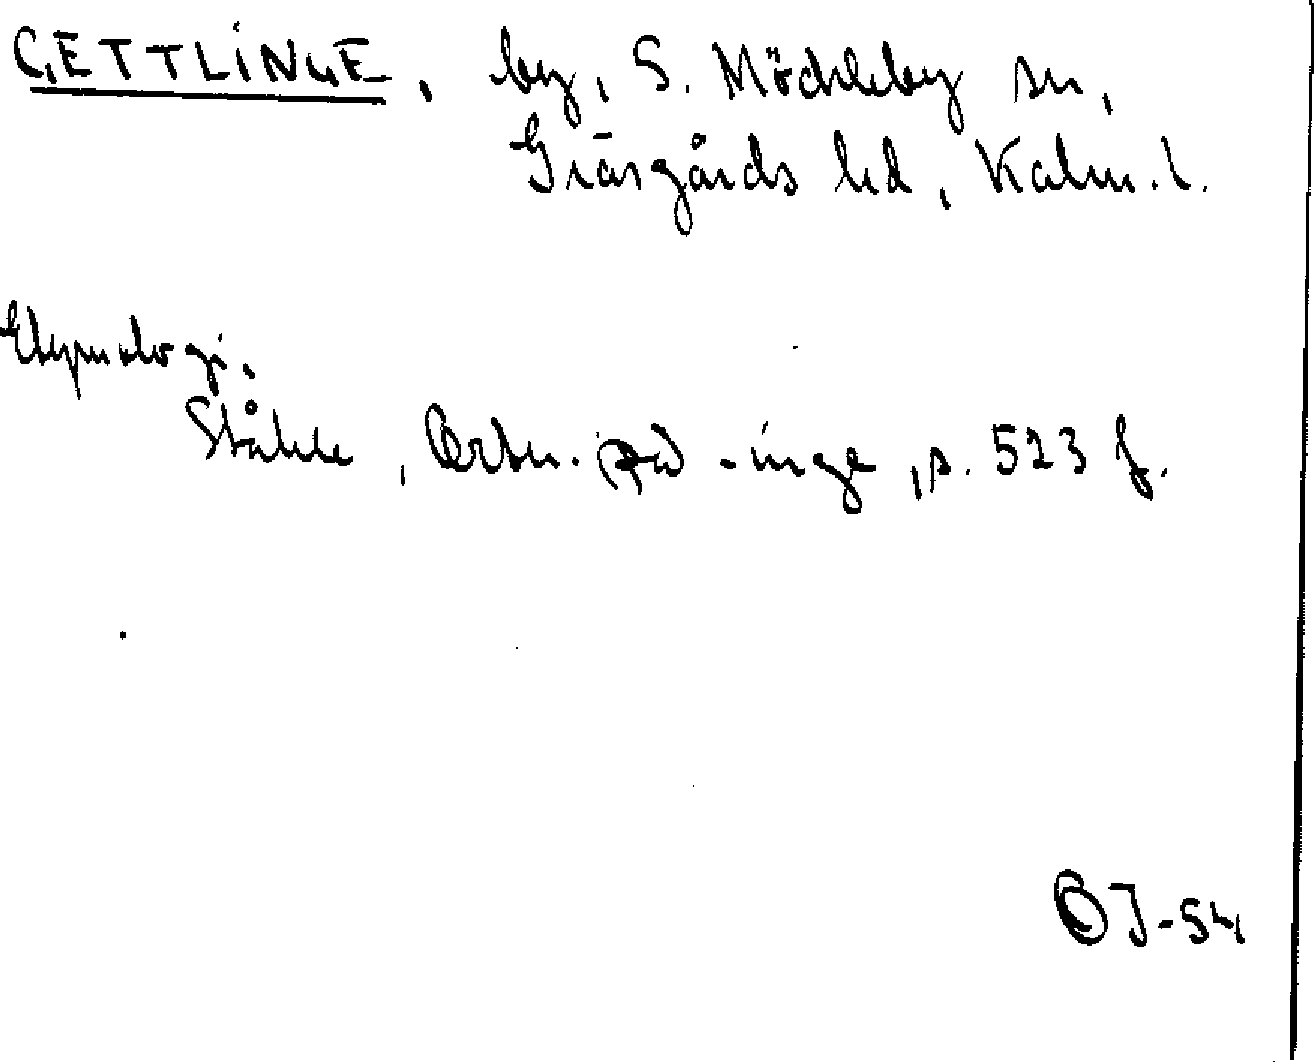 GETTLINGE, by, S. Möckleby sn,
Gräsgårds hd, Kalm. l.
Etymologi.
Ståhle, Ortn. på -inge, s. 523 f.
OJ-54